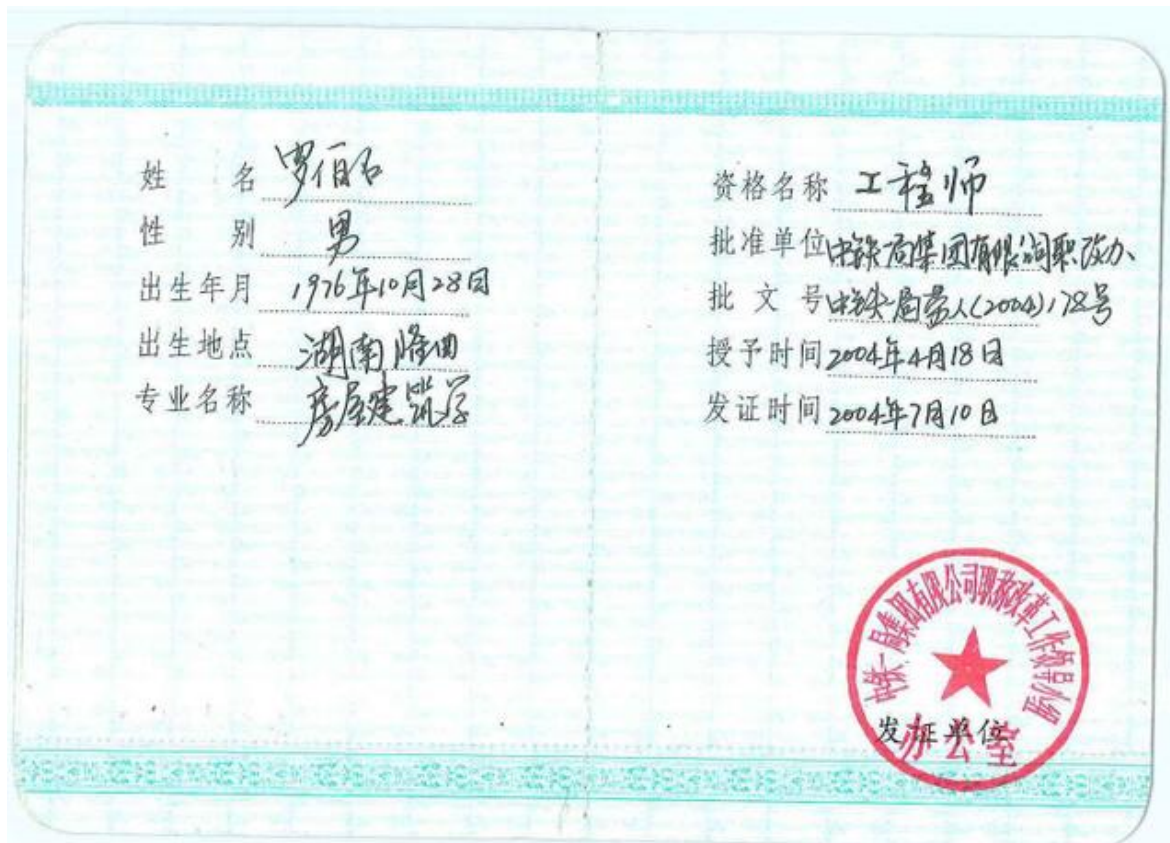 姓 名 罗伯石
性 别 男
出生年月 1976年10月28日
出生地点 湖南
专业名称 房屋建筑学
资格名称 工程师
批准单位 中铁一局集团有限公司职改办
批文号 (2004)178号
授予时间 2004年4月18日
发证时间 2004年7月10日
中铁一局集团有限公司职称改革工作领导小组
办公室
发证单位